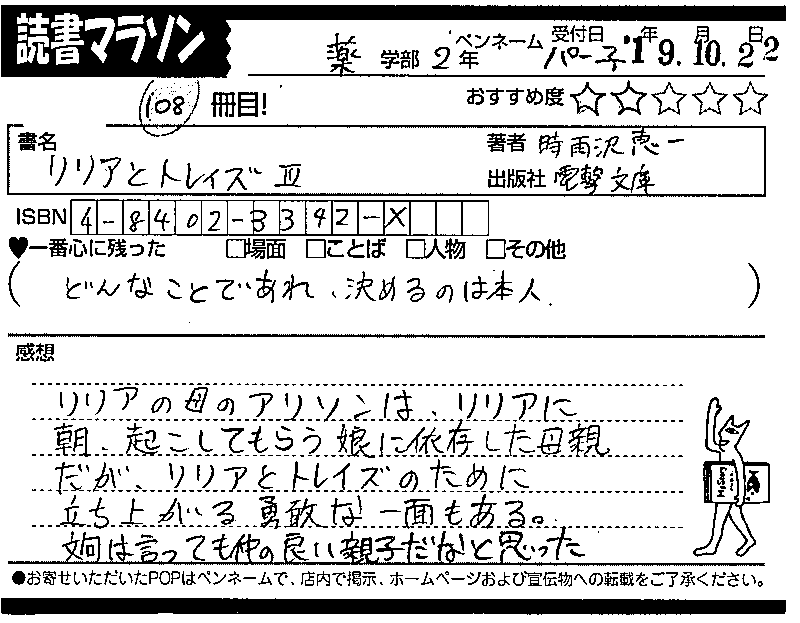 読書マラソン
薬 学部 2年 ペンネーム パー子 受付日 '19年10月22日
108 冊目! おすすめ度 ☆☆☆☆☆
書名 リリアとトレイズ Ⅳ
著者 時雨沢恵一
出版社 電撃文庫
ISBN 4-8402-3342-X
♥一番心に残った □場面 □ことば □人物 □その他
(どんなことであれ、決めるのは本人.)
感想
リリアの母のアリソンは、リリアに
朝、起こしてもらう娘に依存した母親
だが、リリアとトレイズのために
立ち上がる勇敢な一面もある。
何は言っても仲の良い親子だなと思った
●お寄せいただいたPOPはペンネームで、店内で掲示、ホームページおよび宣伝物への転載をご了承ください。